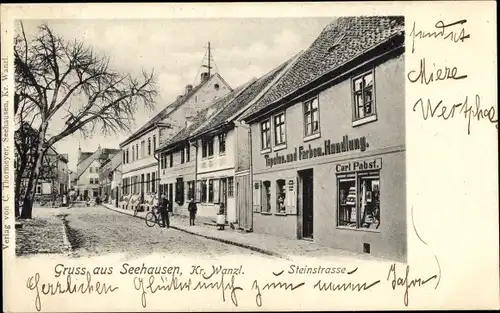 Gruss aus Seehausen, Kr. Wanzl.
Steinstrasse
Verlag von C. Thormeyer, Seehausen, Kr. Wanzl.
Tapeten- und Farben-Handlung.
Carl Pabst.
Herzlichen Glückwunsch zum neuen Jahr
sendet
Mieze
Westphal